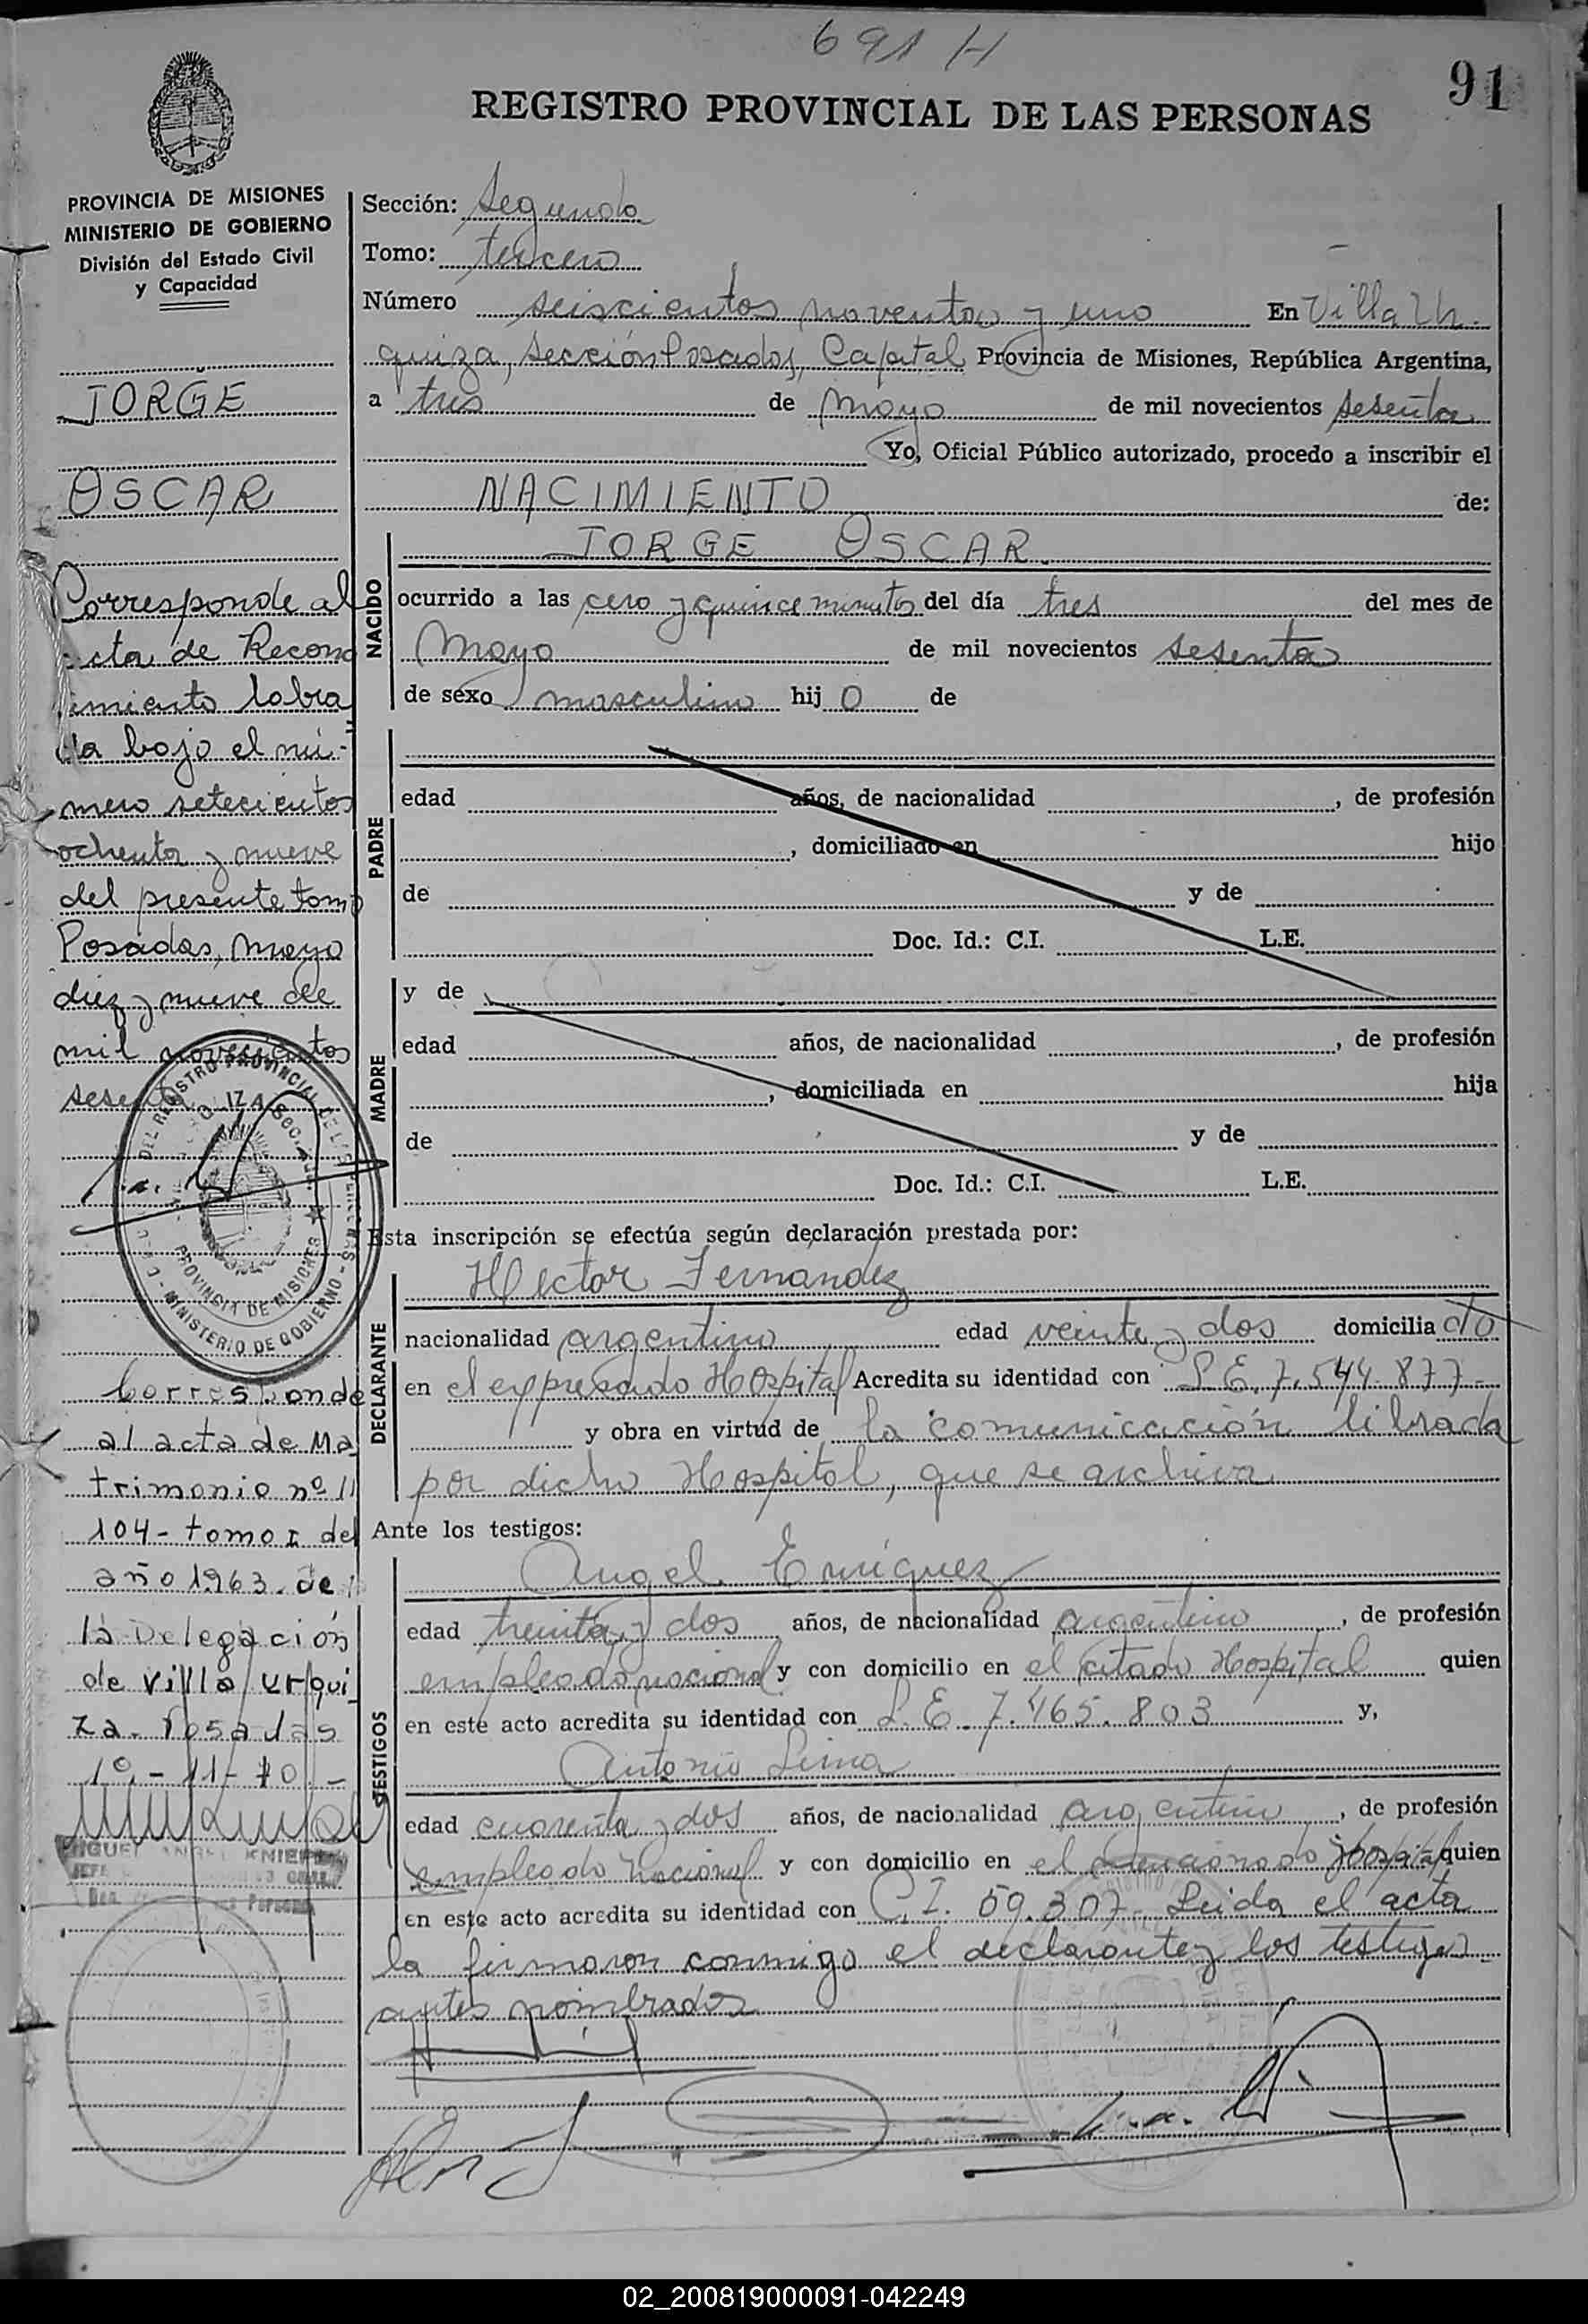 691 H
91
REGISTRO PROVINCIAL DE LAS PERSONAS
PROVINCIA DE MISIONES
MINISTERIO DE GOBIERNO
División del Estado Civil
y Capacidad
JORGE
OSCAR
Corresponde al
acta de Recono
cimiento labra
da bajo el nú-
mero setecientos
ochenta y nueve
del presente tomo
Posadas, mayo
diez y nueve de
mil novecientos
sesenta
DEL REGISTRO PROVINCIAL DE LAS PERSONAS
PROVINCIA DE MISIONES
MINISTERIO DE GOBIERNO
Corresponde
al acta de Ma
trimonio nº
104- tomo I del
año 1963. de
la Delegación
de Villa Urqui
za. Posadas
1º - 11 - 70 -
MIGUEL ANGEL
Sección: Segunda
Tomo: tercero
Número seiscientos noventa y uno En Villa Ur.
quiza, Sección Posadas, Capital Provincia de Misiones, República Argentina,
a tres de mayo de mil novecientos sesenta
Yo, Oficial Público autorizado, procedo a inscribir el
NACIMIENTO de:
NACIDO
JORGE OSCAR.
ocurrido a las cero y quince minutos del día tres del mes de
Mayo de mil novecientos sesenta
de sexo masculino hij o de
PADRE
edad años, de nacionalidad , de profesión
, domiciliado en hijo
de y de
Doc. Id.: C.I. L.E.
MADRE
y de
edad años, de nacionalidad , de profesión
, domiciliada en hija
de y de
Doc. Id.: C.I. L.E.
Esta inscripción se efectúa según declaración prestada por:
DECLARANTE
Hector Fernandez
nacionalidad argentino edad veinte y dos domicilia do
en el expresado Hospital Acredita su identidad con L.E. 7.544.877-
y obra en virtud de la comunicación librada
por dicho Hospital, que se archiva
Ante los testigos:
TESTIGOS
Angel Enriquez
edad treinta y dos años, de nacionalidad argentino , de profesión
empleado nacional y con domicilio en el citado Hospital quien
en este acto acredita su identidad con L.E. 7.465.803 y,
Antonio Lima
edad cuarenta y dos años, de nacionalidad argentino , de profesión
empleado nacional y con domicilio en el mencionado Hospital quien
en este acto acredita su identidad con C.I. 59.307. Leida el acta
la firmaron conmigo el declarante y los testigos
antes nombrados
02_200819000091-042249